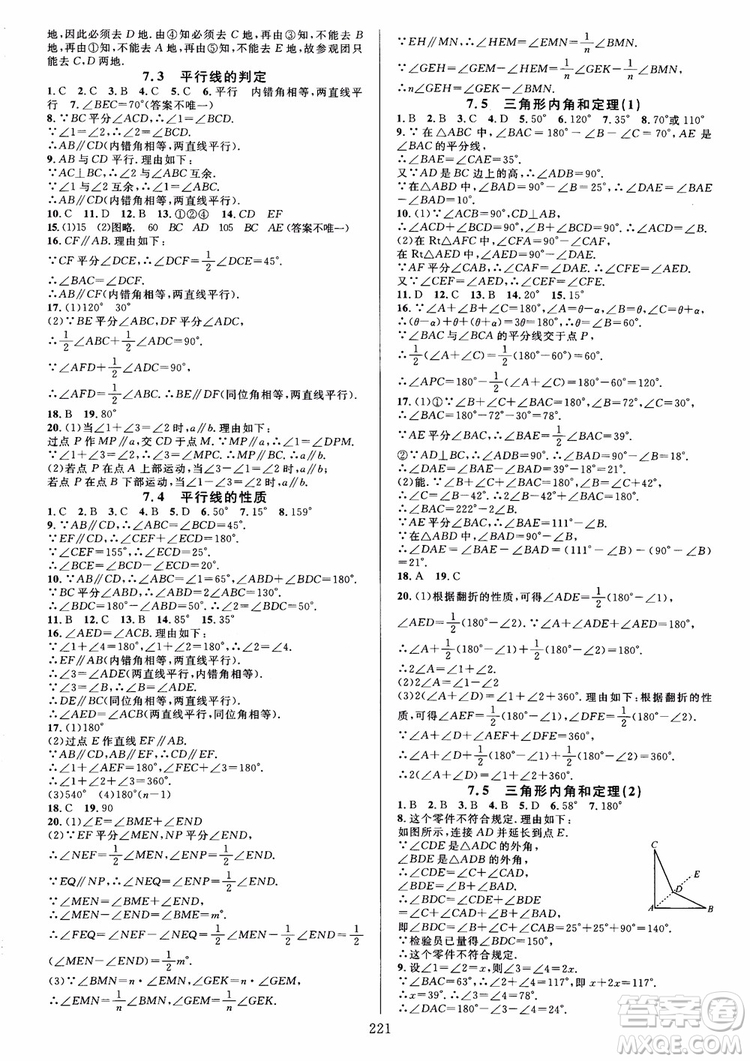 地,因此必须去 D 地.由④知必须去 C 地.由②知,不能去
B 地,再由①知,不能去 A 地,由⑤知,不能去 E 地,故参观团只
能去 C,D 两地.
7.3 平行线的判定
1. C 2. C 3. C 4. C 5. C 6. 平行 内错角相等,两直线平
行 7. ∠BEC=70°(答案不唯一)
8. ∵BC 平分∠ACD,∴∠1=∠BCD.
∵∠1=∠2,∴∠2=∠BCD.
∴AB∥CD(内错角相等,两直线平行).
9. AB 与 CD 平行.理由如下:
∵AC⊥BC,∴∠2 与∠3 互余.
∵∠1 与∠2 互余,∴∠1=∠3.
∴AB∥CD(内错角相等,两直线平行).
10. C 11. D 12. B 13. ①②④ 14. CD EF
15. (1)15 (2)图略. 60 BC AD 105 BC AE(答案不唯一)
16. CF∥AB.理由如下:
∵CF 平分∠DCE,∴∠DCF=1/2∠DCE=45°.
∴∠BAC=∠DCF.
∴AB∥CF(内错角相等,两直线平行).
17. (1)120° 30°
(2)∵BE 平分∠ABC,DF 平分∠ADC,
∴1/2∠ABC+1/2∠ADC=90°.
∴∠AFD+1/2∠ADC=90°.
∴∠AFD=1/2∠ABC.∴BE∥DF(同位角相等,两直线平行).
18. B 19. 80°
20. (1)当∠1+∠3=∠2 时,a∥b.
过点 P 作 MP∥a,交 CD 于点 M.∵MP∥a,∴∠1=∠DPM.
∵∠1+∠3=∠2,∴∠3=∠MPC.∴MP∥b.∴a∥b.
(2)若点 P 在 A 上部运动,当∠3=∠1+∠2 时,a∥b;
若点 P 在 B 下部运动,当∠1=∠2+∠3 时,a∥b.
7.4 平行线的性质
1. C 2. C 3. C 4. D 5. D 6. 50° 7. 15° 8. 159°
9. ∵AB∥CD,∴∠ABC=∠BCD=45°.
∵EF∥CD,∴∠CEF+∠ECD=180°.
∵∠CEF=155°,∴∠ECD=25°.
∴∠BCE=∠BCD-∠ECD=20°.
10. ∵AB∥CD,∴∠ABC=∠1=65°,∠ABD+∠BDC=180°.
∵BC 平分∠ABD,∴∠ABD=2∠ABC=130°.
∴∠BDC=180°-∠ABD=50°.∴∠2=∠BDC=50°.
11. B 12. D 13. B 14. 85° 15. 35°
16. ∠AED=∠ACB.理由如下:
∵∠1+∠4=180°,∠1+∠2=180°,∴∠2=∠4.
∴EF∥AB(内错角相等,两直线平行).
∴∠3=∠ADE(两直线平行,内错角相等).
∵∠3=∠B,∴∠B=∠ADE.
∴DE∥BC(同位角相等,两直线平行).
∴∠AED=∠ACB(两直线平行,同位角相等).
17. (1)180°
(2)过点 E 作直线 EF∥AB.
∵AB∥CD,AB∥EF,∴CD∥EF.
∴∠1+∠AEF=180°,∠FEC+∠3=180°.
∴∠1+∠2+∠3=360°.
(3)540° (4)180°(n-1)
18. C 19. 90
20. (1)∠E=∠BME+∠END
(2)∵EF 平分∠MEN,NP 平分∠END,
∴∠NEF=1/2∠MEN,∠ENP=1/2∠END.
∵EQ∥NP,∴∠NEQ=∠ENP=1/2∠END.
∵∠MEN=∠BME+∠END,
∴∠MEN-∠END=∠BME=m°.
∴∠FEQ=∠NEF-∠NEQ=1/2∠MEN-1/2∠END=1/2
(∠MEN-∠END)=1/2m°.
(3)∵∠EMN=n·∠BMN,∠GEK=n·∠GEM,
∴∠EMN=1/n∠BMN,∠GEM=1/n∠GEK.
∵EH∥MN,∴∠HEM=∠EMN=1/n∠BMN.
∵∠GEH=∠GEM+∠HEM=1/n∠GEK+1/n∠BMN,
∴n∠GEH=∠GEK+∠BMN.
7.5 三角形内角和定理(1)
1. C 2. C 3. C 4. D 5. 50° 6. 120° 7. 35° 8. 70°或110°
9. ∵在△ABC 中,∠BAC=180°-∠B-∠C=70°,AE 是
∠BAC 的平分线,
∴∠BAE=∠CAE=35°.
又∵AD 是 BC 边上的高,∴∠ADB=90°.
∵在△ABD 中,∠BAD=90°-∠B=25°,∴∠DAE=∠BAE-∠BAD=10°.
10. (1)∵∠ACB=90°,CD⊥AB,∴∠ADC=90°.
∴∠ACD+∠BAC=90°,∠B+∠BAC=90°.∴∠ACD=∠B.
(2)在 Rt△AFC 中,∠CFA=90°-∠CAF,
在 Rt△AED 中,∠AED=90°-∠DAE.
∵AF 平分∠CAB,∴∠CAF=∠DAE.∴∠AED=∠CFE.
又∵∠CEF=∠AED,∴∠CEF=∠CFE.
11. D 12. C 13. B 14. 20° 15. 15°
16. ∵∠A+∠B+∠C=180°,∠A=θ-α,∠B=θ,∠C=θ+α,
∴θ-α+θ+θ+α=3θ=180°.∴θ=60°,即∠B=60°.
∵∠BAC 与∠BCA 的平分线交于点 P,
∴1/2(∠A+∠C)=1/2(180°-60°)=60°.
∴∠APC=180°-60°=120°.
17. (1)①∵∠B+∠C+∠BAC=180°,∠B=72°,∠C=30°,
∴∠BAC=78°.
∵AE 平分∠BAC,∴∠BAE=1/2∠BAC=39°.
②∵AD⊥BC,∴∠ADB=90°.∴∠BAD=90°-∠B=18°.
∴∠DAE=∠BAE-∠BAD=39°-18°=21°.
(2)能.∵∠B+∠C+∠BAC=180°,∠B=∠C+42°,
∴∠C=∠B-42°.∴2∠B+∠BAC=222°.
∴∠BAC=222°-2∠B.
∵AE 平分∠BAC,∴∠BAE=1/2∠BAC=111°-∠B.
∴∠DAE=∠BAE-∠BAD=(111°-∠B)-(90°-∠B)=
21°.
18. A 19. C
20. (1)根据翻折的性质,可得∠ADE=1/2(180°-∠1),
∠AED=1/2(180°-∠2).∵∠A+∠ADE+∠AED=180°,
∴∠A+1/2(180°-∠1)+1/2(180°-∠2)=180°.
∴2∠A=∠1+∠2.
(2)2∠A=∠2-∠1
(3)2(∠A+∠D)=∠1+∠2+360°.理由如下:根据翻折的性质,
可得∠AEF=1/2(180°-∠1),∠DFE=1/2(180°-∠2).
∵∠A+∠D+∠AEF+∠DFE=360°,
∴∠A+∠D+1/2(180°-∠1)+1/2(180°-∠2)=360°.
∴2(∠A+∠D)=∠1+∠2+360°.
7.5 三角形内角和定理(2)
1. B 2. B 3. D 4. B 5. D 6. 58° 7. 180°
8. 这个零件不符合规定.理由如下:
如图所示,连接 AD 并延长到点 E.
∵∠CDE 是△ADC 的外角,
∠BDE 是△ABD 的外角,
∴∠CDE=∠C+∠CAD,
∠BDE=∠B+∠BAD.
∴∠BDC=∠CDE+∠BDE
=∠C+∠CAD+∠B+∠BAD,
即∠BDC=∠B+∠C+∠A.
∵检验员已量得∠BDC=150°,
∴这个零件不符合规定.
9. 设∠1=∠2=x,则∠4=∠3=2x.
∵∠2+∠4+∠BAC=180°,∠BAC=63°,即 x+2x=117°,
∴x=39°.∴∠3=∠4=78°.
∴∠DAC=180°-∠3-∠4=24°.
C
E
D
A
B
221